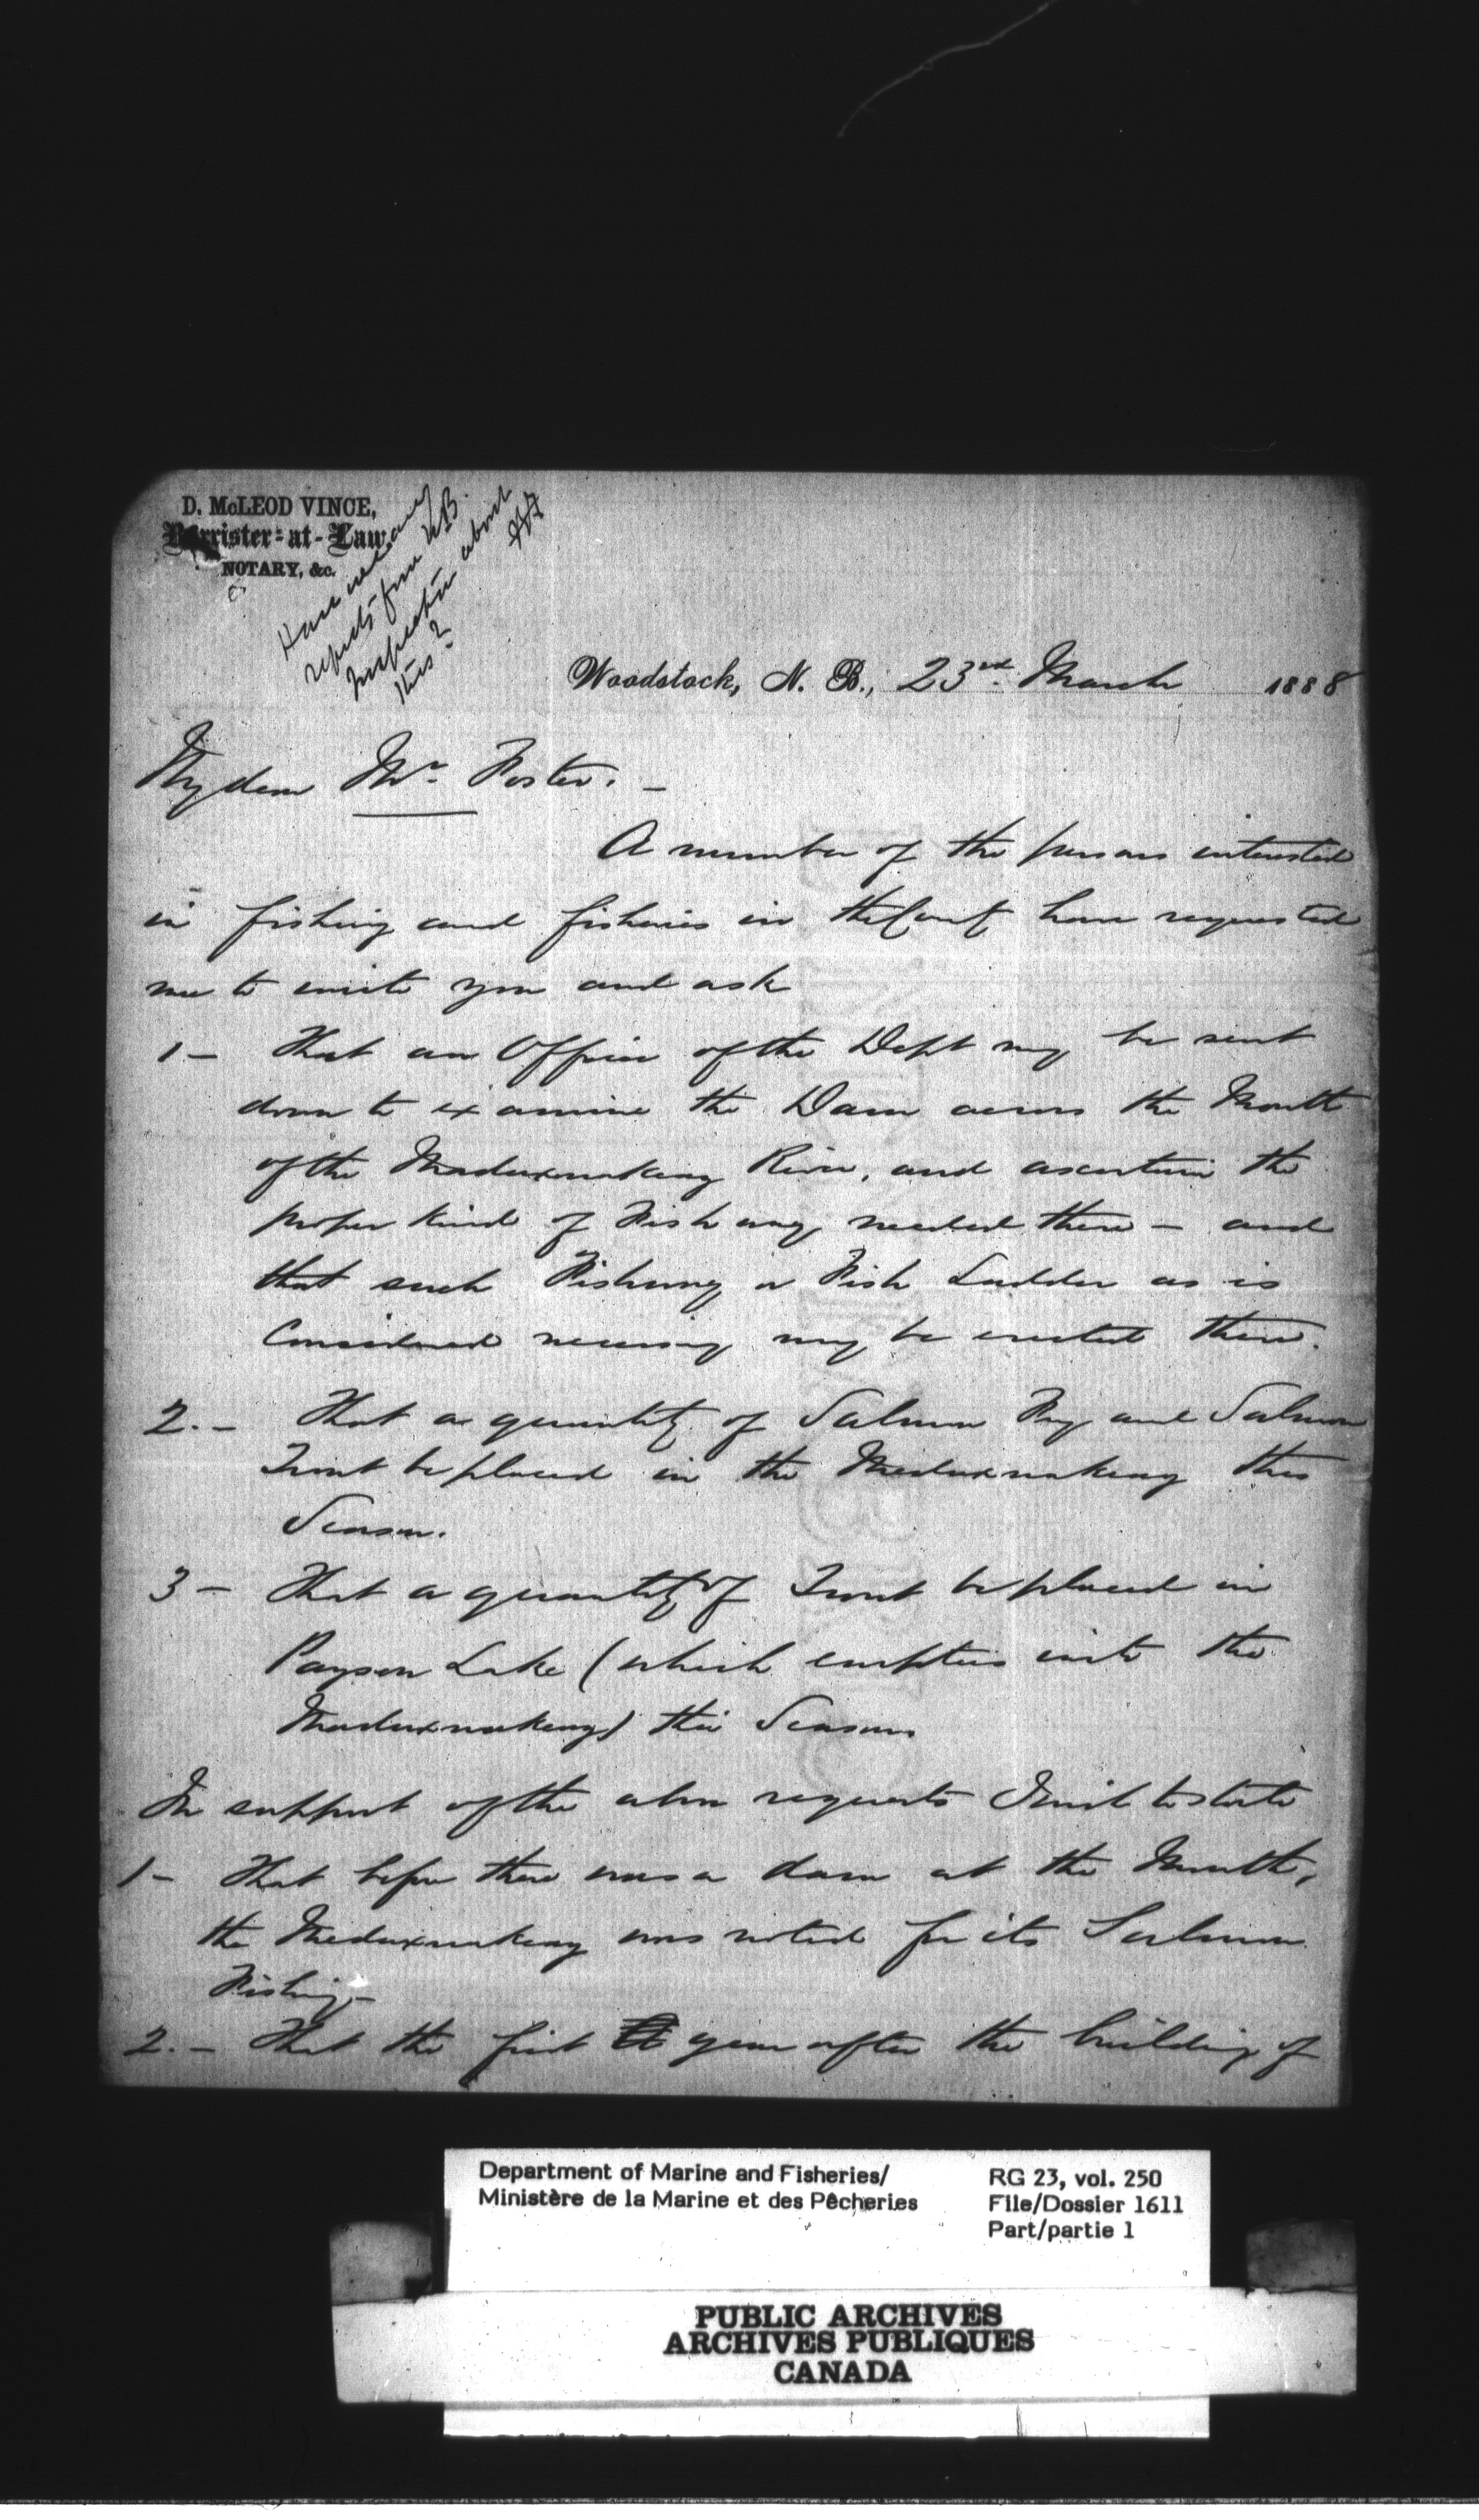 D. McLEOD VINCE,
Barrister-at-Law,
NOTARY, &c.
Have we any
reports from N.B.
Inspector about
this?
Woodstock, N. B., 23rd March 1888
My dear Mr Foster. —
A number of the persons interested
in fishing and fisheries in the County have requested
me to write you and ask
1 — That an Officer of the Dept may be sent
down to examine the Dam across the Mouth
of the Meduxnakeag River, and ascertain the
proper kind of Fishway needed there — and
that such Fishway or Fish Ladder as is
Considered necessary may be erected there.
2. — That a quantity of Salmon Fry and Salmon
Trout be placed in the Meduxnakeag this
Season.
3 — That a quantity of Trout be placed in
Payson Lake (which empties into the
Meduxnakeag) this Season
In support of the above requests I wish to state
1 — That before there was a dam at the Mouth,
the Meduxnakeag was noted for its Salmon
Fishing —
2. — That the first year after the building of
Department of Marine and Fisheries/
Ministère de la Marine et des Pêcheries
RG 23, vol. 250
File/Dossier 1611
Part/partie 1
PUBLIC ARCHIVES
ARCHIVES PUBLIQUES
CANADA